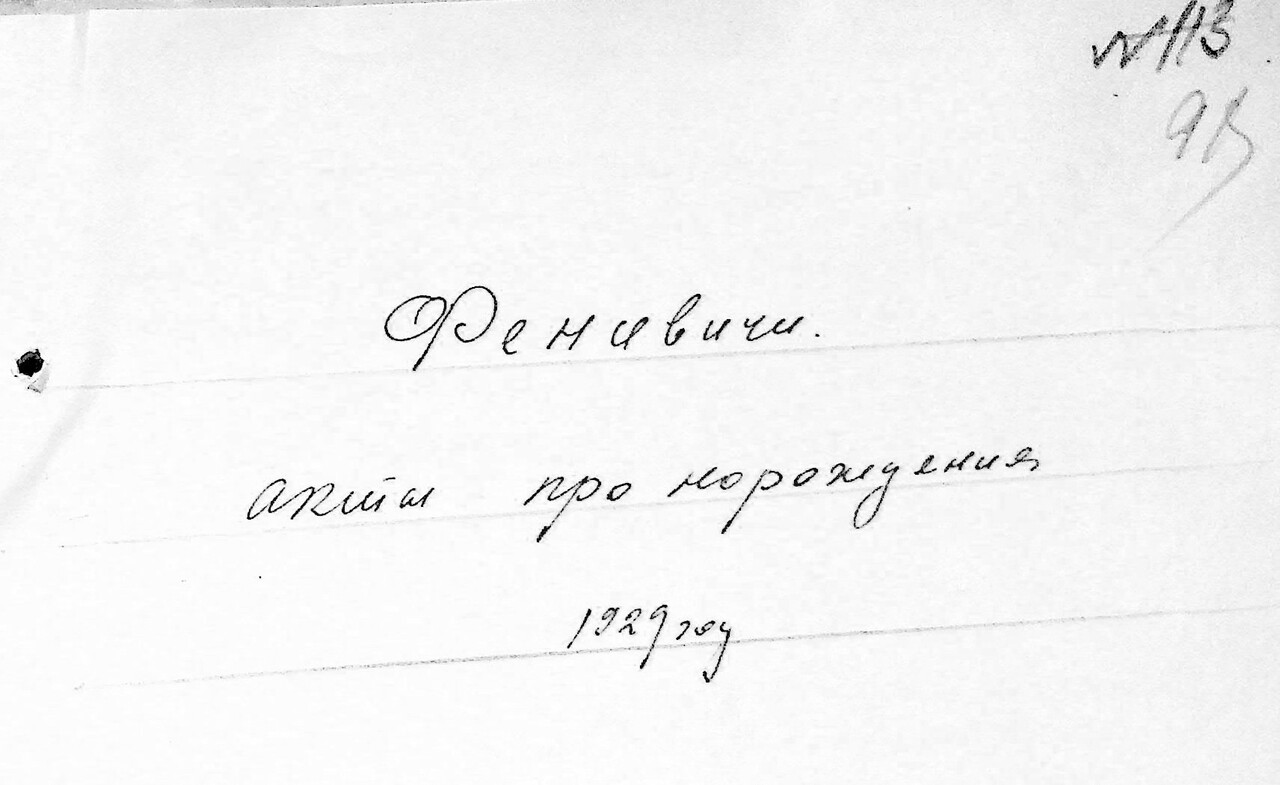 №113
Феневичи.
акты про норождения
1929 году